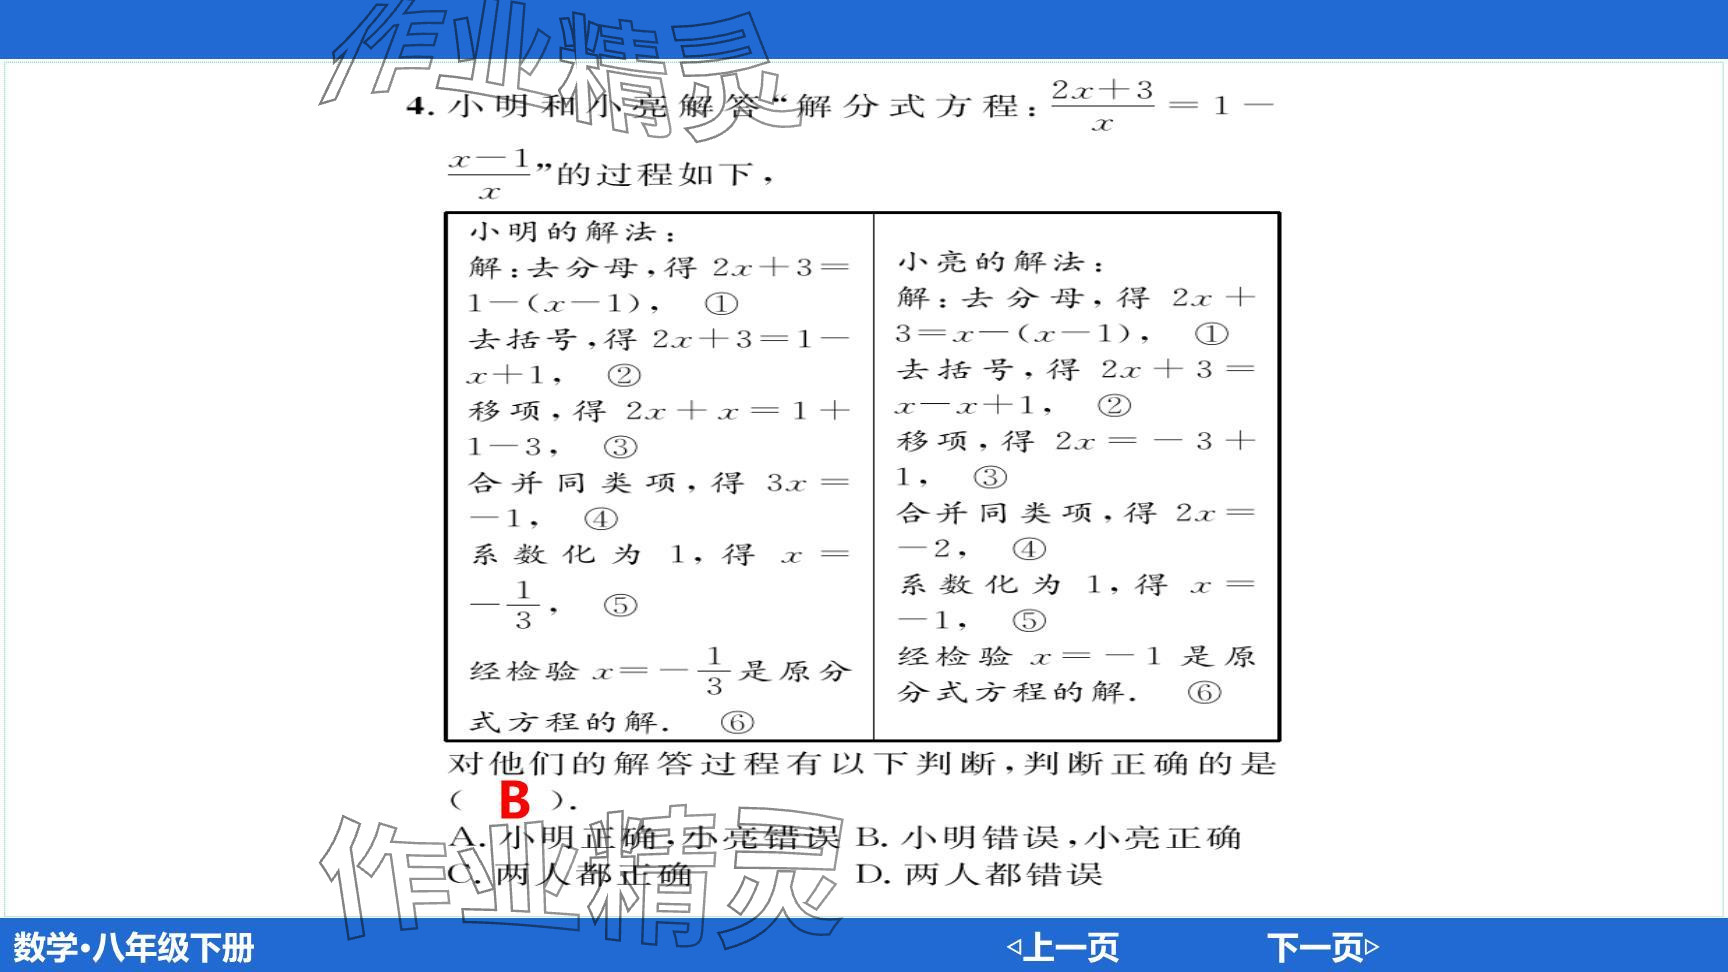 作业精灵
4. 小明和小亮解答“解分式方程: \frac{2x+3}{x}=1-
\frac{x-1}{x}”的过程如下,
小明的解法:
解:去分母,得 2x+3=
1-(x-1), ①
去括号,得 2x+3=1-
x+1, ②
移项,得 2x+x=1+
1-3, ③
合并同类项,得 3x=
-1, ④
系数化为 1,得 x=
-\frac{1}{3}, ⑤
经检验 x=-\frac{1}{3}是原分
式方程的解. ⑥
小亮的解法:
解:去分母,得 2x+
3=x-(x-1), ①
去括号,得 2x+3=
x-x+1, ②
移项,得 2x=-3+
1, ③
合并同类项,得 2x=
-2, ④
系数化为 1,得 x=
-1, ⑤
经检验 x=-1 是原
分式方程的解. ⑥
对他们的解答过程有以下判断,判断正确的是
( B ).
A. 小明正确,小亮错误 B. 小明错误,小亮正确
C. 两人都正确 D. 两人都错误
作业精灵
数学·八年级下册 上一页 下一页